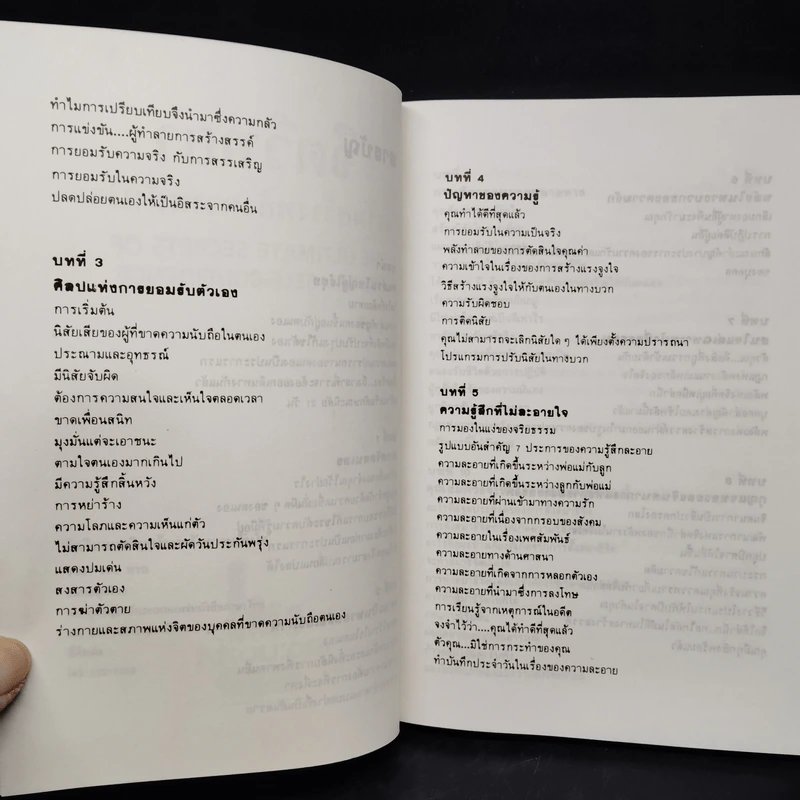 ทำไมการเปรียบเทียบจึงนำมาซึ่งความกลัว
การแข่งขัน....ผู้ทำลายการสร้างสรรค์
การยอมรับความจริง กับการสรรเสริญ
การยอมรับในความจริง
ปลดปล่อยตนเองให้เป็นอิสระจากคนอื่น
บทที่ 3
ศิลปแห่งการยอมรับตัวเอง
การเริ่มต้น
นิสัยเสียของผู้ที่ขาดความนับถือในตนเอง
ประณามและอุทธรณ์
มีนิสัยจับผิด
ต้องการความสนใจและเห็นใจตลอดเวลา
ขาดเพื่อนสนิท
มุงมั่นแต่จะเอาชนะ
ตามใจตนเองมากเกินไป
มีความรู้สึกสิ้นหวัง
การหย่าร้าง
ความโลภและความเห็นแก่ตัว
ไม่สามารถตัดสินใจและผัดวันประกันพรุ่ง
แสดงปมเด่น
สงสารตัวเอง
การฆ่าตัวตาย
ร่างกายและสภาพแห่งจิตของบุคคลที่ขาดความนับถือตนเอง
บทที่ 4
ปัญหาของความรู้
คุณทำได้ดีที่สุดแล้ว
การยอมรับในความเป็นจริง
พลังทำลายของการตัดสินใจคุณค่า
ความเข้าใจในเรื่องของการสร้างแรงจูงใจ
วิธีสร้างแรงจูงใจให้กับตนเองในทางบวก
ความรับผิดชอบ
การติดนิสัย
คุณไม่สามารถจะเลิกนิสัยใด ๆ ได้เพียงตั้งความปรารถนา
โปรแกรมการปรับนิสัยในทางบวก
บทที่ 5
ความรู้สึกที่ไม่ละอายใจ
การมองในแง่ของจริยธรรม
รูปแบบอันสำคัญ 7 ประการของความรู้สึกละอาย
ความละอายที่เกิดขึ้นระหว่างพ่อแม่กับลูก
ความละอายที่เกิดขึ้นระหว่างลูกกับพ่อแม่
ความละอายที่ผ่านเข้ามาทางความรัก
ความละอายที่เนื่องจากกรอบของสังคม
ความละอายในเรื่องเพศสัมพันธ์
ความละอายทางด้านศาสนา
ความละอายที่เกิดจากการหลอกตัวเอง
ความละอายที่นำมาซึ่งการลงโทษ
การเรียนรู้จากเหตุการณ์ในอดีต
จงจำไว้ว่า....คุณได้ทำดีที่สุดแล้ว
ตัวคุณ...มิใช่การกระทำของคุณ
ทำบันทึกประจำวันในเรื่องของความละอาย